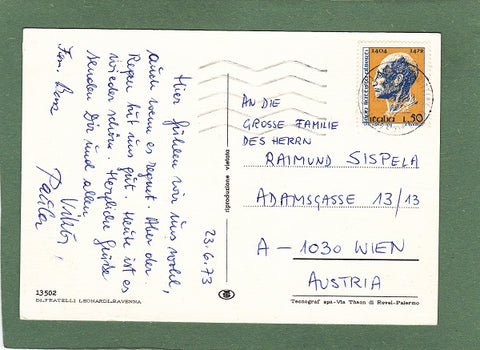 Hier fühlen wir uns wohl,
auch wenn es regnet. Aber der
Regen tut uns gut. Heute ist es
wieder schön. Herzliche Grüße
senden Dir und allen
Fam.
23.6.73
1404 1472
Italia L.50
AN DIE
GROSSE FAMILIE
DES HERRN
RAIMUND SISPELA
ADAMSGASSE 13/13
A - 1030 WIEN
AUSTRIA
13502
Dt. FRATELLI LEONARDI-RAVENNA
Tecnograf spa-Via Thaon di Revel-Palermo